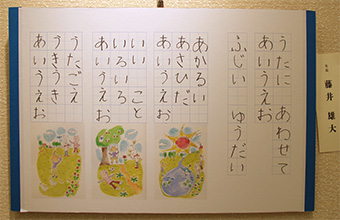 うたに あわせて
あいうえお
ふじい ゆうだい
あかるい
あさひだ
あいうえお
いい こと
いろいろ
あいうえお
うたごえ
うきうき
あいうえお
藤井 雄大